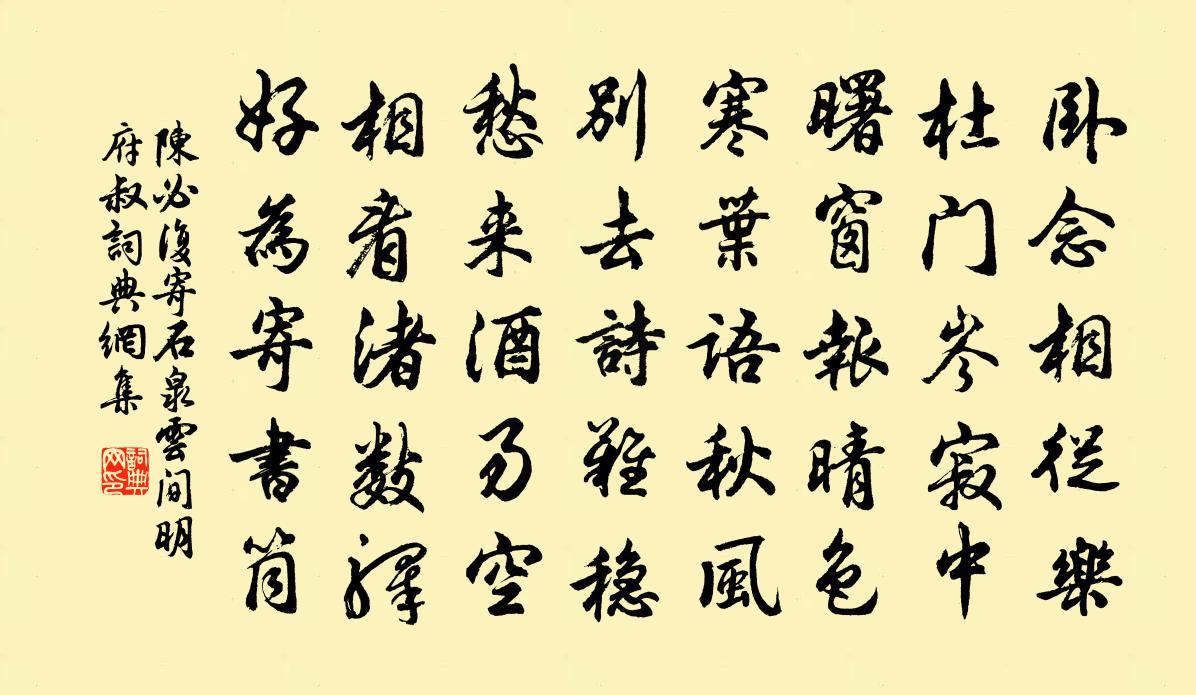 卧念相從樂
杜门岑寂中
曙窗報晴色
寒葉語秋風
别去詩難穩
愁来酒易空
相看渚數驛
好為寄書筒
陳必復寄石泉雲间明
府叔詞典網集
詞典网印